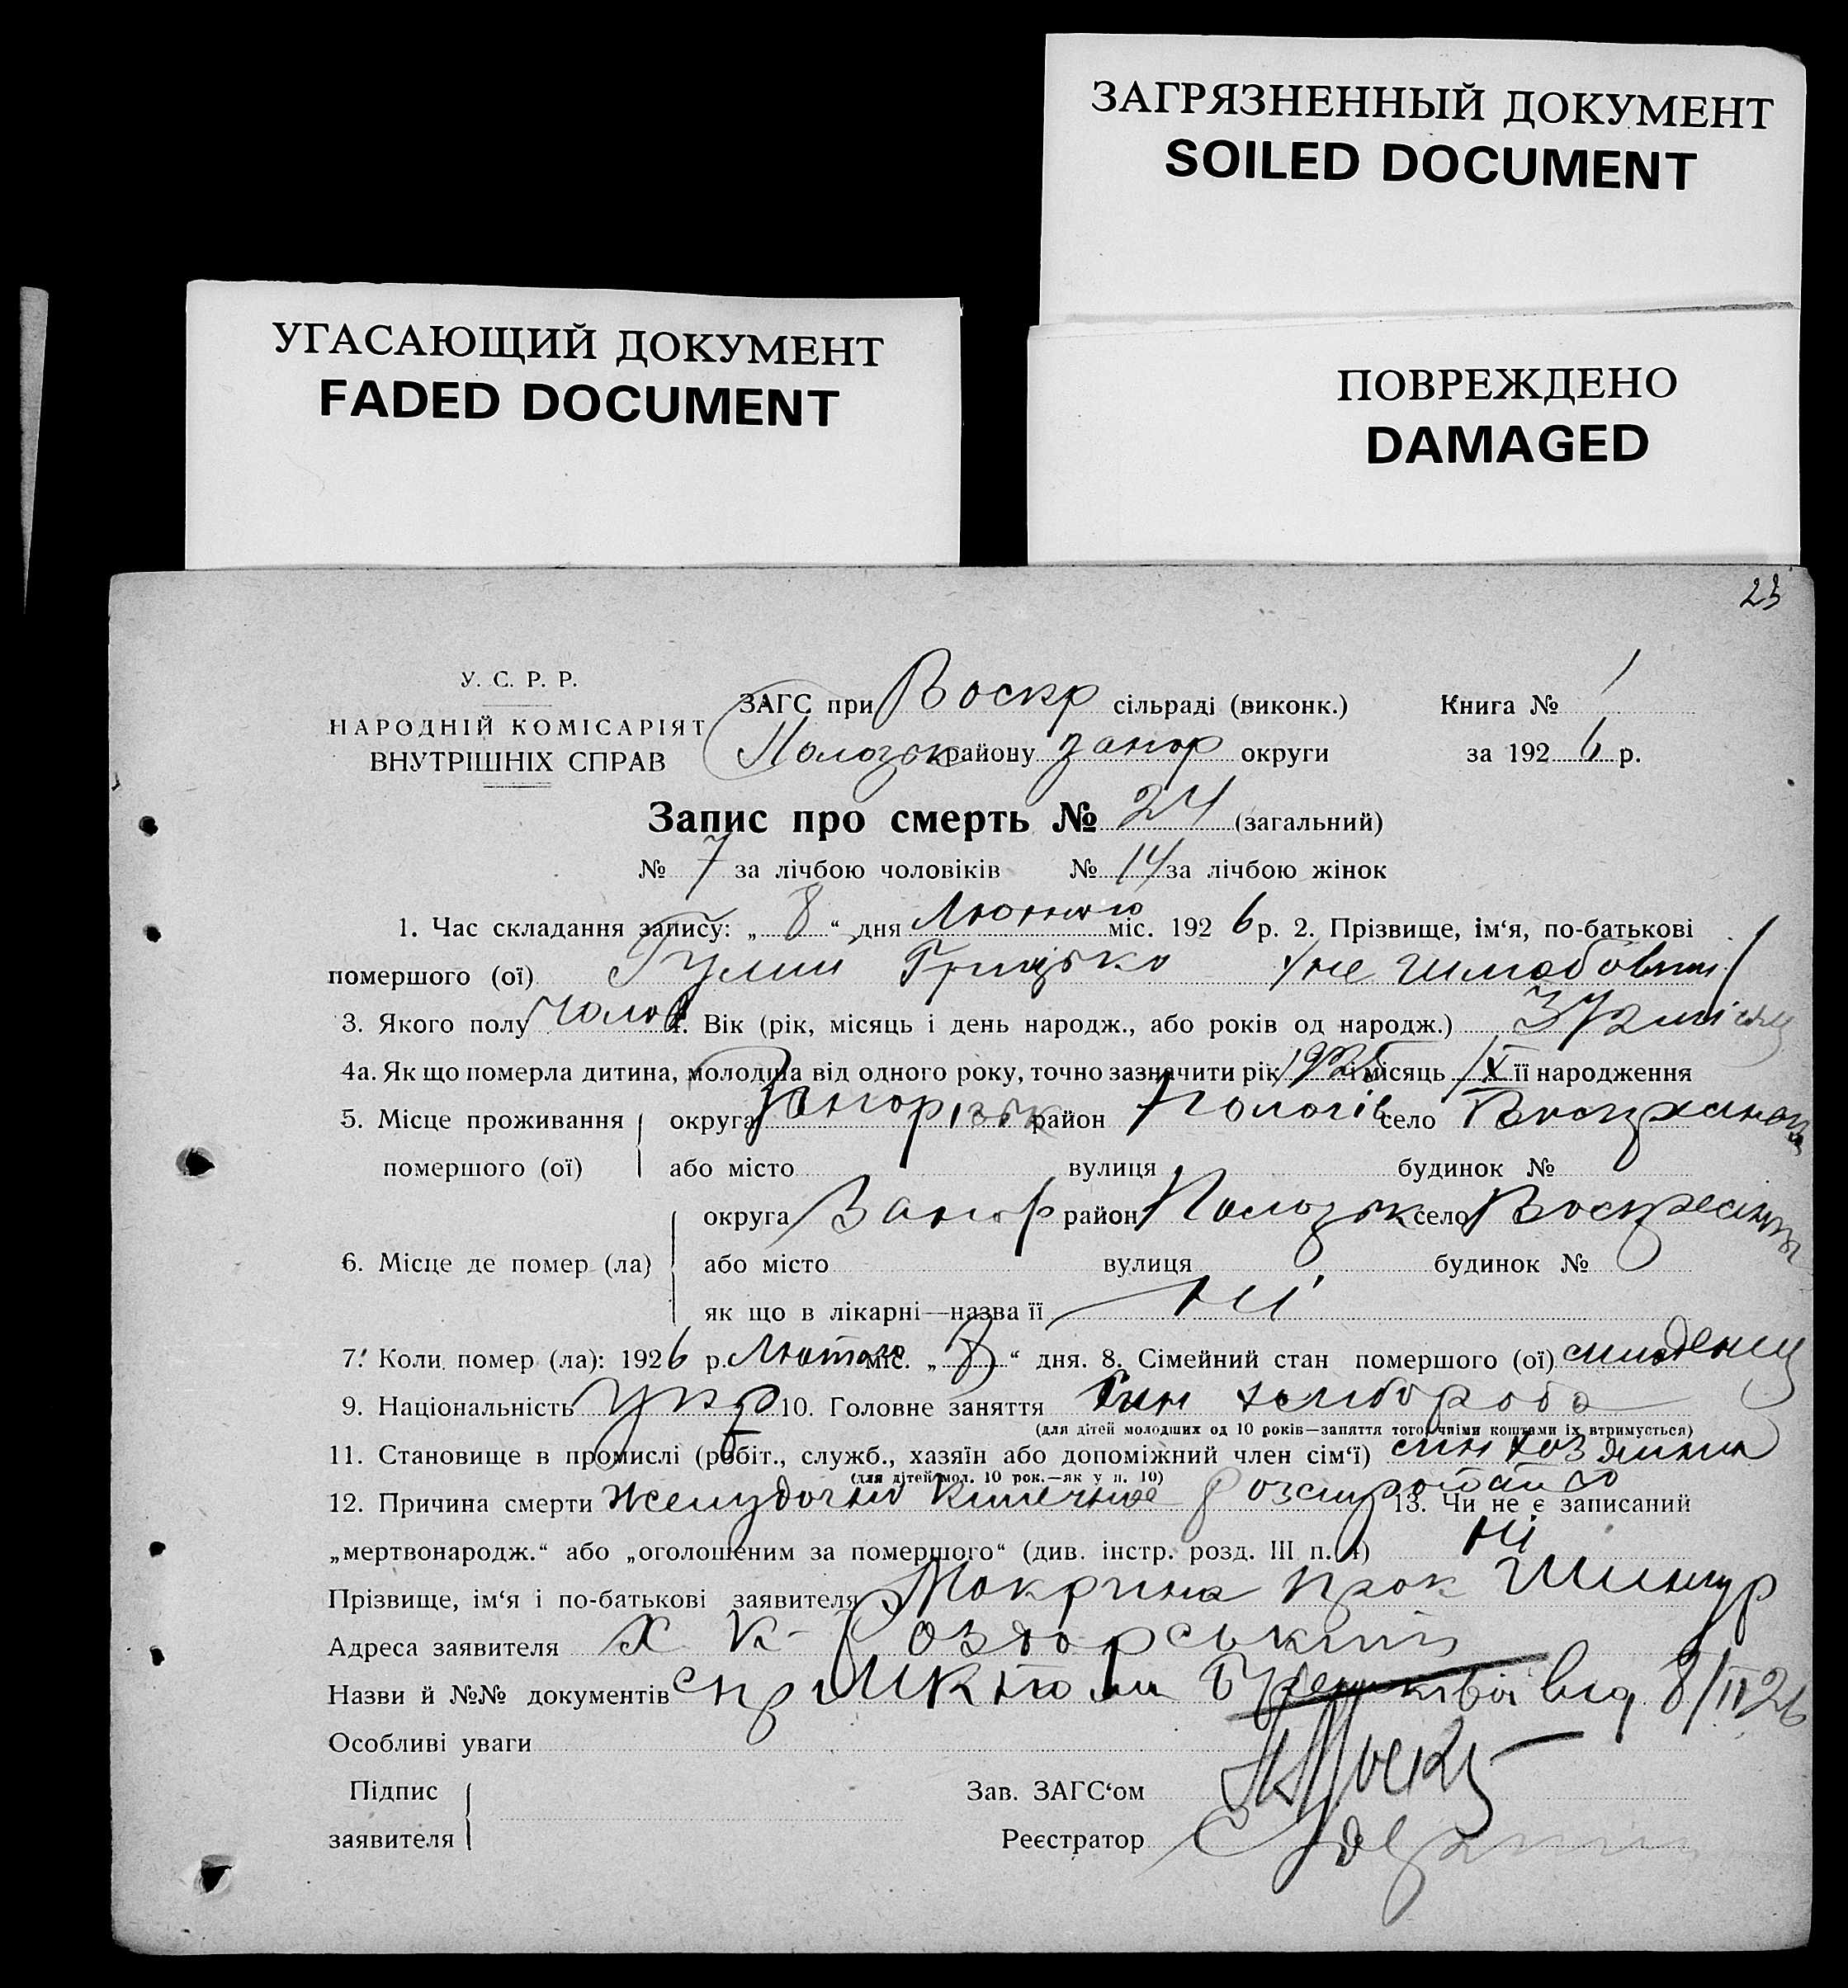 ЗАГРЯЗНЕННЫЙ ДОКУМЕНТ
SOILED DOCUMENT
УГАСАЮЩИЙ ДОКУМЕНТ
FADED DOCUMENT
ПОВРЕЖДЕНО
DAMAGED
23
У. С. Р. Р.
НАРОДНІЙ КОМІСАРІЯТ
ВНУТРІШНІХ СПРАВ
ЗАГС при Воскр сільраді (виконк.) Книга № 1
Пологзьк району Запор округи за 1926 р.
Запис про смерть № 21 (загальний)
№ 7 за лічбою чоловіків № 14 за лічбою жінок
1. Час складання запису: „ 8 “ дня Лютого міс. 1926 р. 2. Прізвище, ім‘я, по-батькові
помершого (ої) Грицько /не шлюбовний/
3. Якого полу чолов 4. Вік (рік, місяць і день народж., або років од народж.)
4а. Як що померла дитина, молодша від одного року, точно зазначити рік 1925 і місяць IX її народження
5. Місце проживання округа Запорізьк район Пологів село
помершого (ої) або місто вулиця будинок №
округа Запор район Пологзьк село
6. Місце де помер (ла) або місто вулиця будинок №
як що в лікарні—назва її Ні
7. Коли помер (ла): 1926 р. Лютого міс. „ 8 “ дня. 8. Сімейний стан помершого (ої)
9. Національність Укр 10. Головне заняття син хлібороба
(для дітей молодших од 10 років—заняття того, чиїми коштами їх втримується)
11. Становище в промислі (робіт., служб., хазяїн або допоміжний член сім‘ї) син хозяина
(для дітей мол. 10 рок.—як у п. 10)
12. Причина смерти желудочно кишечное розстройство 13. Чи не є записаний
„мертвонародж.“ або „оголошеним за померщого“ (див. інстр. розд. III п. 4) Ні
Прізвище, ім‘я і по-батькові заявителя Мокрина Прок
Адреса заявителя х К-Роздорський
Назви й №№ документів від 8/II 26
Особливі уваги
Підпис
заявителя
Зав. ЗАГС‘ом
Реєстратор